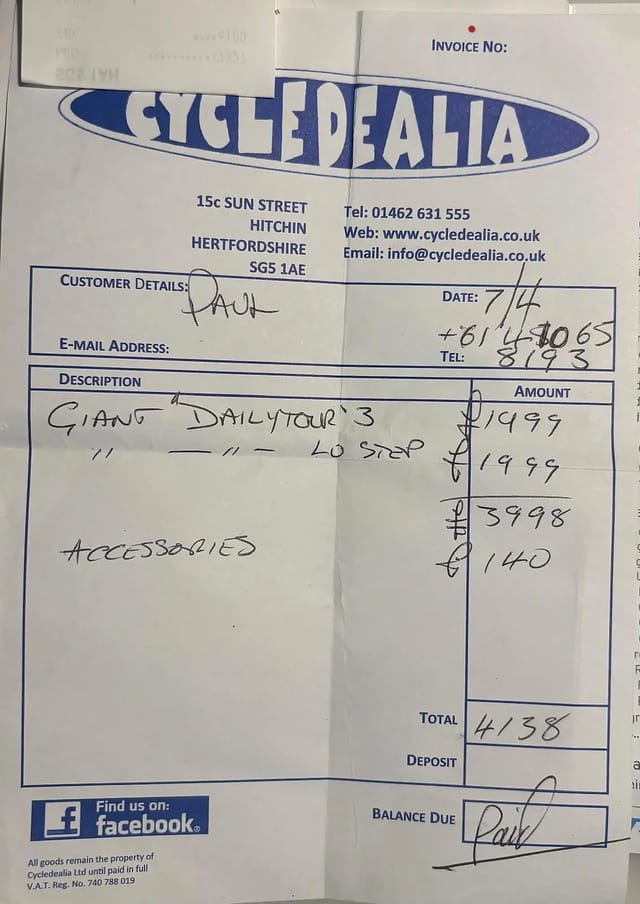 INVOICE NO:
CYCLEDEALIA
15c SUN STREET
HITCHIN
HERTFORDSHIRE
SG5 1AE
Tel: 01462 631 555
Web: www.cycledealia.co.uk
Email: info@cycledealia.co.uk
CUSTOMER DETAILS: PAUL
E-MAIL ADDRESS:
DATE: 7/4
TEL: 8193
DESCRIPTION AMOUNT
GIANT "DAILYTOUR'3 £1999
" — " — LO STEP £1999
£3998
ACCESSORIES £140
TOTAL 4138
DEPOSIT
BALANCE DUE Paid
f Find us on:
facebook®
All goods remain the property of
Cycledealia Ltd until paid in full
V.A.T. Reg. No. 740 788 019